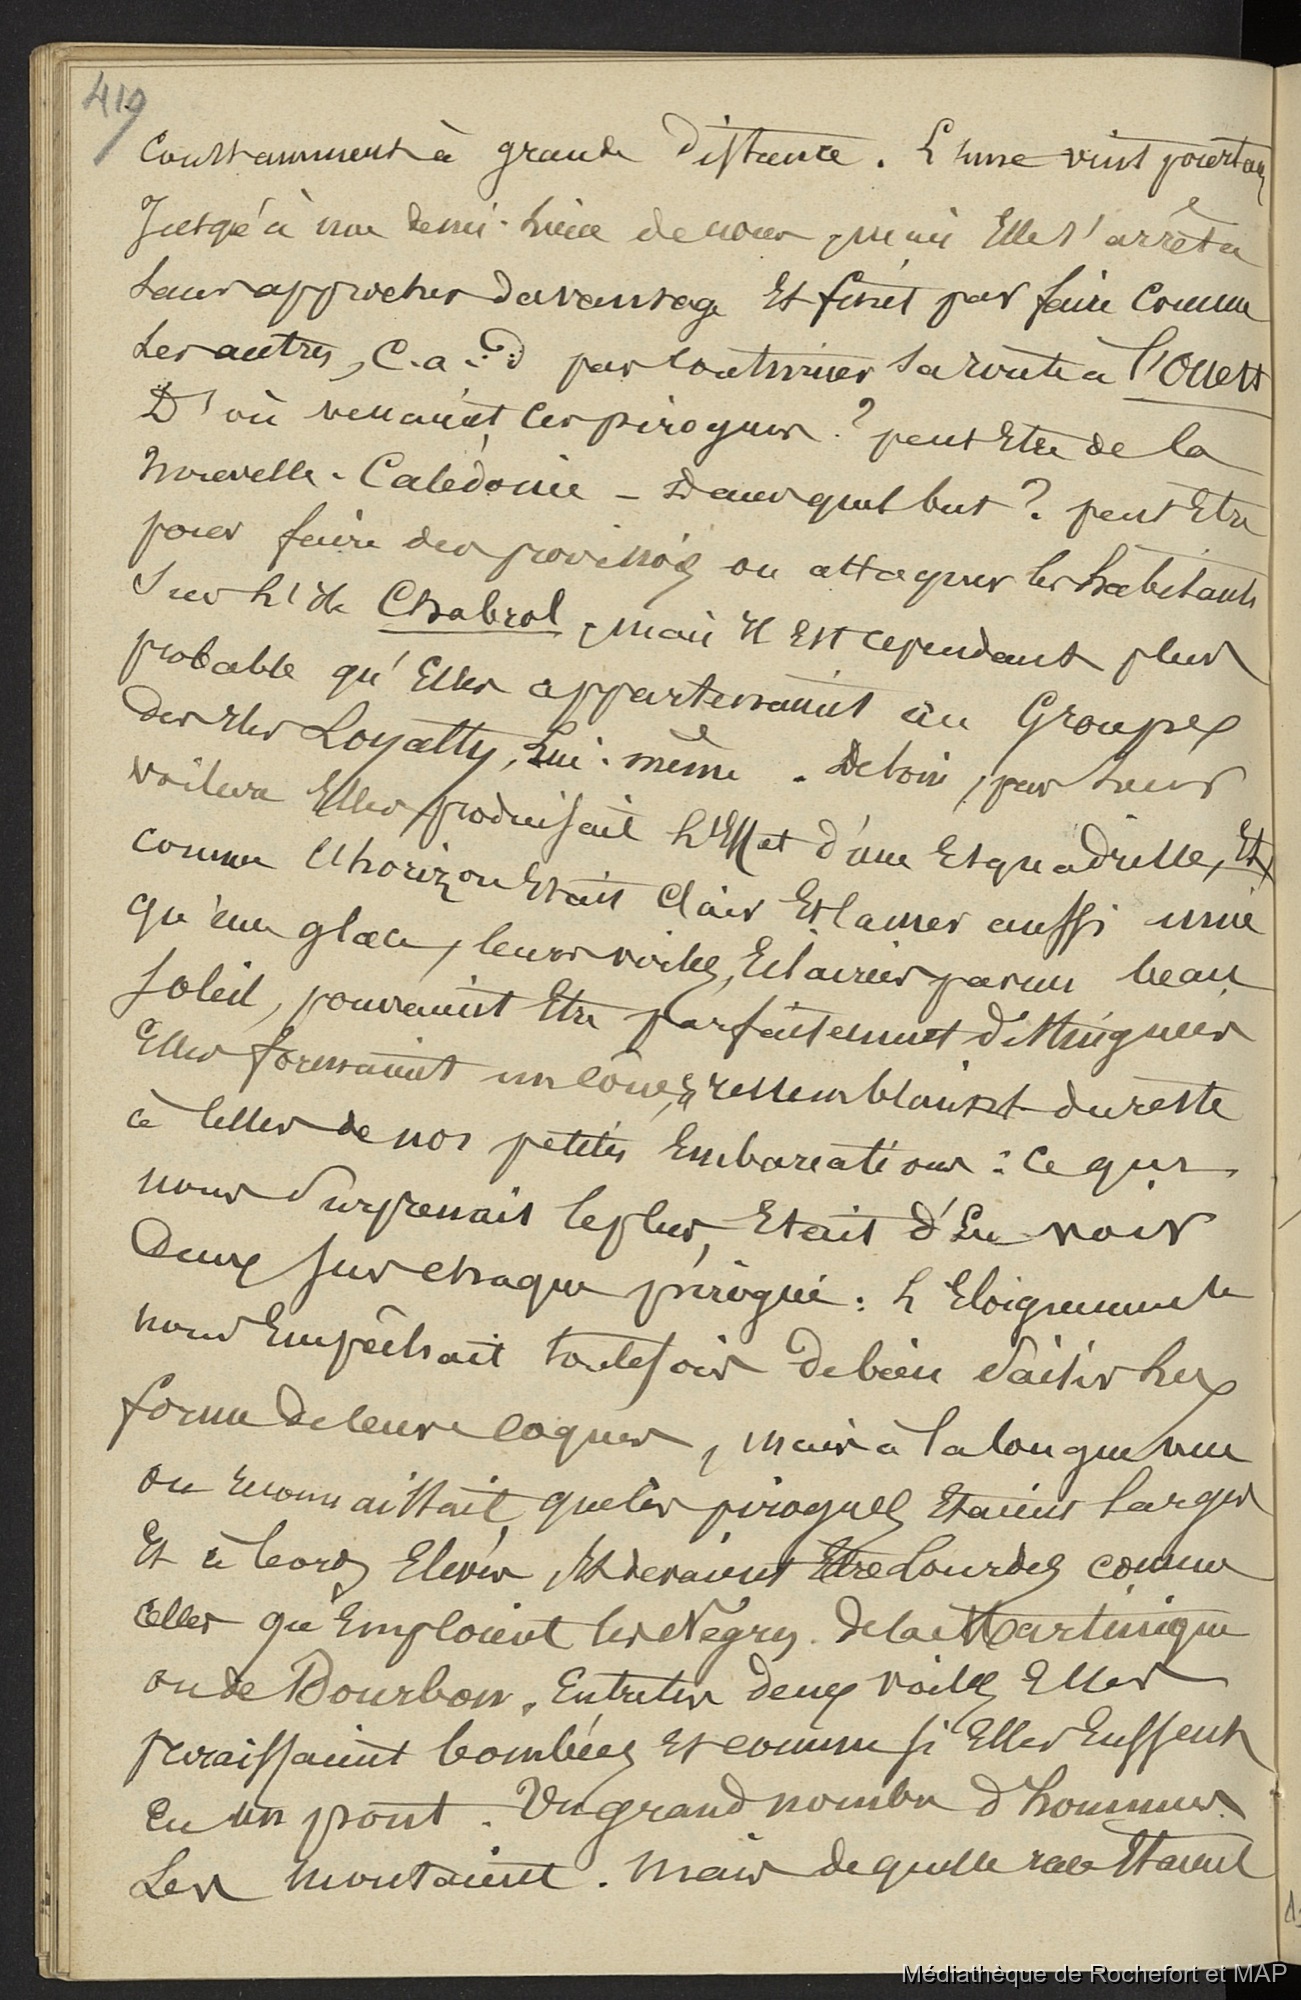 419
Constamment à grande Distance. L'une vint pourtant
Jusqu'à une demi-lieue de nous, mais Elle s'arrêta
sans approcher davantage Et finit par faire Comme
les autres, C.a.D par continuer sa route à l'Ouest
D'où venaient ces pirogues? peut Etre de la
Nouvelle-Calédonie – Dans quel but? peut Etre
pour faire des provisions ou attaquer les habitants
Sur l'Ile Chabrol, mais Il Est cependant plus
probable qu'Elles appartenaient au Groupe
des Iles Loyalty, Lui-même. De loin, par leurs
voilure Elles produisait l'Effet d'une Esquadrille, Et
comme l'horizon Etait Clair Et la mer aussi unie
qu'une glace, leurs voiles, Eclairées par un beau
soleil, pouvaient Etre parfaitement distinguées
Elles formaient un cône, & ressemblaient du reste
à celles de nos petites Embarcations: Ce qui
nous surprenait le plus, Etait d'En voir
Deux sur chaque pirogue: L'Eloignement
nous Empêchait toutefois De bien saisir la
forme de leurs coques, mais à la longue vue
on reconnaissait que les pirogues Etaient larges
Et à bords Elevés, Et devaient Etre lourdes comme
celles qu'Emploient les Nègres de la Martinique
ou de Bourbon. Entre les deux voiles Elles
paraissaient bombées Et comme si Elles Eussent
Eu un pont. Un grand nombre d'hommes
Les montaient. Mais de quelle race Etaient
Médiathèque de Rochefort et MAP